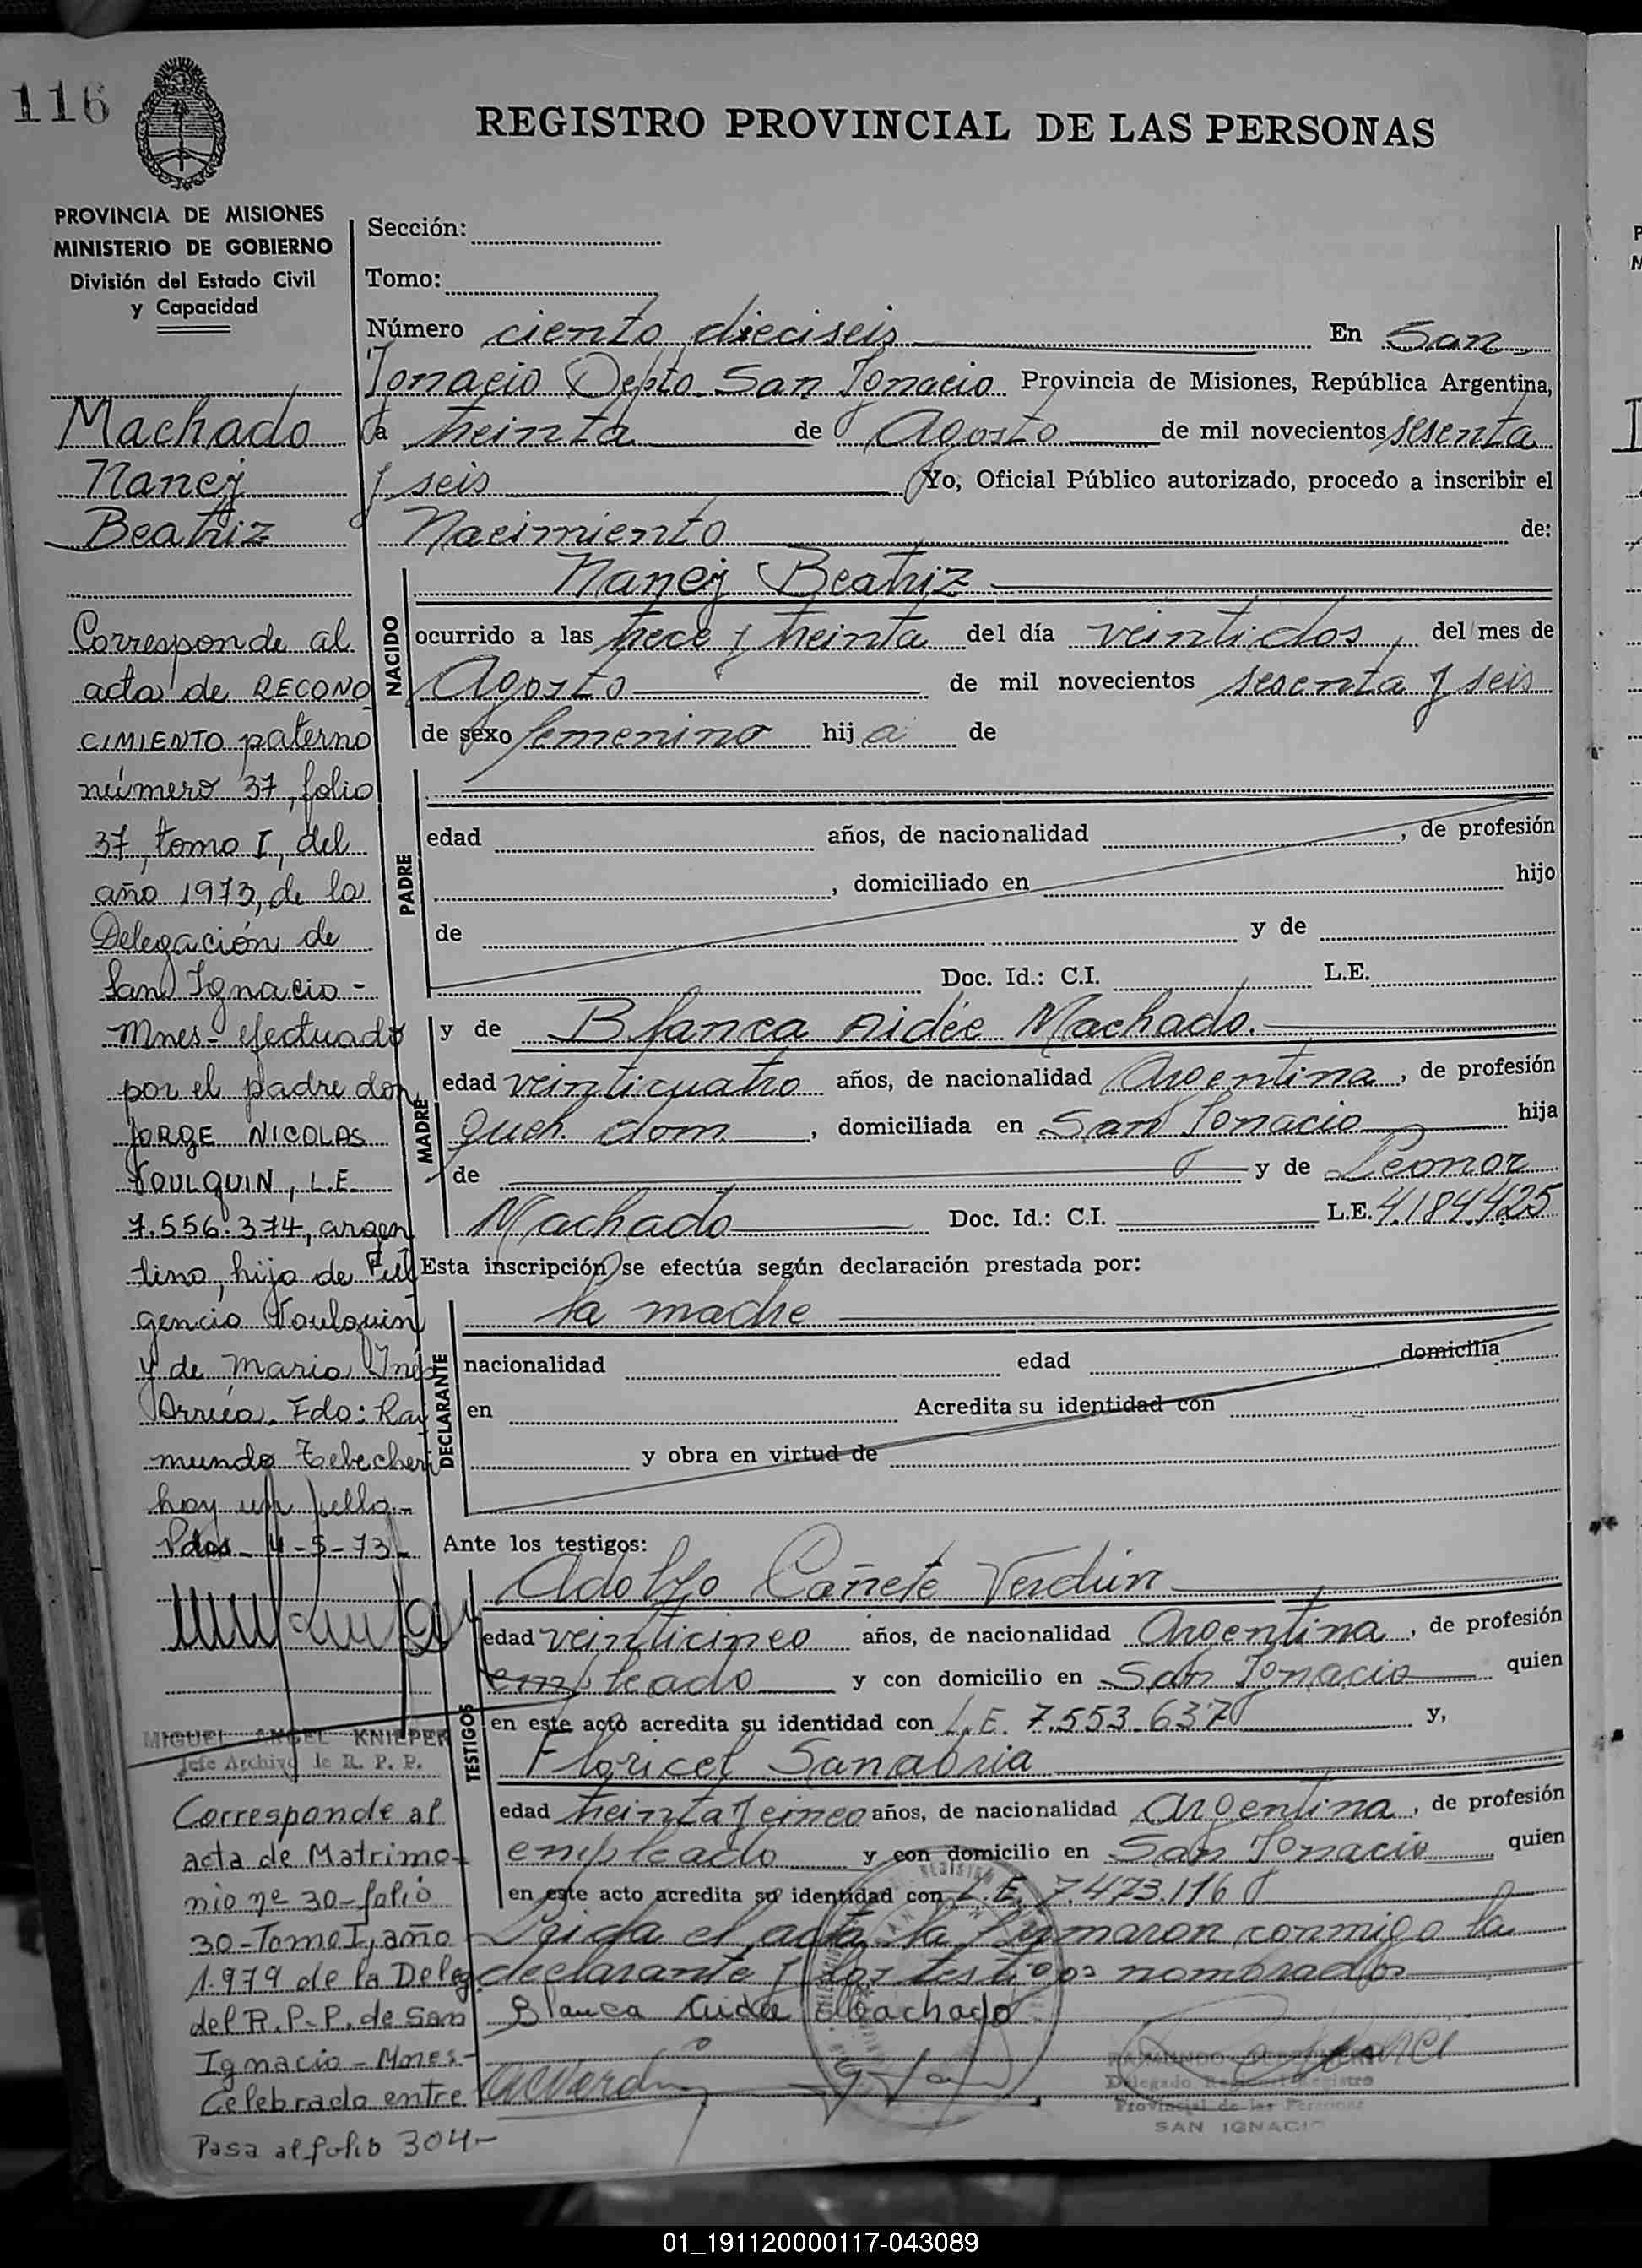 116
REGISTRO PROVINCIAL DE LAS PERSONAS
PROVINCIA DE MISIONES
MINISTERIO DE GOBIERNO
División del Estado Civil
y Capacidad
Machado
Nancy
Beatriz
Corresponde al
acta de RECONO
CIMIENTO paterno
número 37, folio
37, tomo I, del
año 1973, de la
Delegación de
San Ignacio -
Mnes - efectuado
por el padre don
JORGE NICOLAS
VOULQUIN, L.E.
7.556.374, argen
tino, hijo de Ful
gencio Voulquin
y de Maria Inés
Fdo: Ray
mundo
hoy un sello.-
Pdas - 4-5-73-
MIGUEL ANGEL KNIEPER
Jefe Archivo de R. P. P.
Corresponde al
acta de Matrimo-
nio nº 30-folio
30-Tomo I, año
1.979 de la Deleg.
del R.P.P. de San
Ignacio - Mnes-
Celebrado entre
Pasa al folio 304-
Sección:
Tomo:
Número ciento dieciseis En San
Ignacio Depto. San Ignacio Provincia de Misiones, República Argentina,
a treinta de Agosto de mil novecientos sesenta
y seis Yo, Oficial Público autorizado, procedo a inscribir el
Nacimiento de:
NACIDO
Nancy Beatriz
ocurrido a las trece y treinta del día veintidos, del mes de
Agosto de mil novecientos sesenta y seis
de sexo femenino hija de
PADRE
edad años, de nacionalidad , de profesión
, domiciliado en hijo
de y de
Doc. Id.: C.I. L.E.
MADRE
y de Blanca Aidée Machado.
edad veinticuatro años, de nacionalidad Argentina, de profesión
queh. dom. , domiciliada en San Ignacio hija
de y de Leonor
Machado Doc. Id.: C.I. L.E. 4.184.425
Esta inscripción se efectúa según declaración prestada por:
DECLARANTE
la madre
nacionalidad edad domicilia
en Acredita su identidad con
y obra en virtud de
Ante los testigos:
TESTIGOS
Adolfo Cañete Verdún
edad veinticinco años, de nacionalidad Argentina, de profesión
empleado y con domicilio en San Ignacio quien
en este acto acredita su identidad con L.E. 7.553.637 y,
Floricel Sanabria
edad treinta y cinco años, de nacionalidad Argentina, de profesión
empleado y con domicilio en San Ignacio quien
en este acto acredita su identidad con L.E. 7.473.116
Leida el acta la firmaron conmigo la
declarante y los testigos nombrados
Blanca Aidée Machado
Delegado Registro
Provincial de las Personas
SAN IGNACIO
01_191120000117-043089